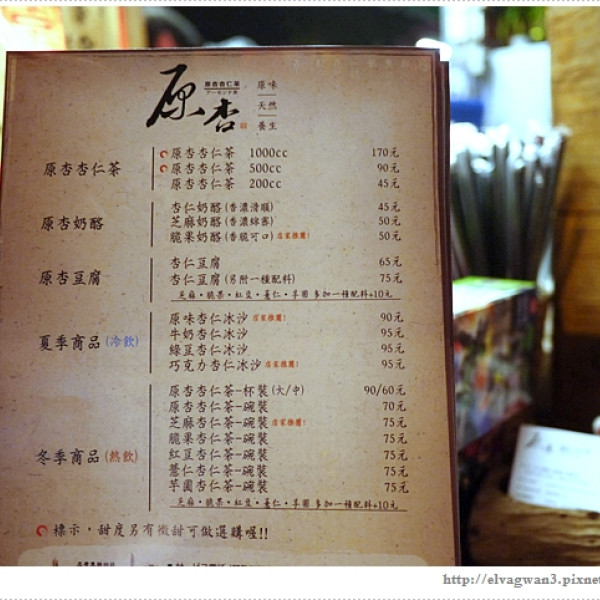 原杏
原杏杏仁茶
アーモンド茶
原味
天然
養生
原杏杏仁茶
原杏杏仁茶 1000cc 170元
原杏杏仁茶 500cc 90元
原杏杏仁茶 200cc 45元
原杏奶酪
杏仁奶酪(香濃滑順) 45元
芝麻奶酪(香濃綿密) 50元
脆果奶酪(香脆可口) 店家推薦! 50元
原杏豆腐
杏仁豆腐 65元
杏仁豆腐(另附一種配料) 75元
芝麻・脆果・紅豆・薏仁・芋圓 多加一種配料+10元
夏季商品(冷飲)
原味杏仁冰沙 店家推薦! 90元
牛奶杏仁冰沙 95元
綠豆杏仁冰沙 95元
巧克力杏仁冰沙 店家推薦! 95元
冬季商品(熱飲)
原杏杏仁茶-杯裝(大/中) 90/60元
原杏杏仁茶-碗裝 70元
芝麻杏仁茶-碗裝 店家推薦! 75元
脆果杏仁茶-碗裝 75元
紅豆杏仁茶-碗裝 75元
薏仁杏仁茶-碗裝 75元
芋圓杏仁茶-碗裝 75元
芝麻・脆果・紅豆・薏仁・芋圓 多加一種配料+10元
標示，甜度另有微甜可做選購喔!!
原杏
http://elvagwan3.pixne